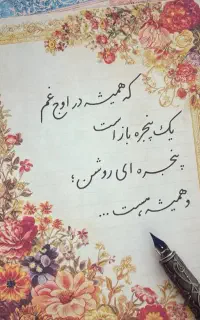 که همیشه در اوج غم
یک پنجره باز است
پنجره ای روشن؛
و همیشه هست ...